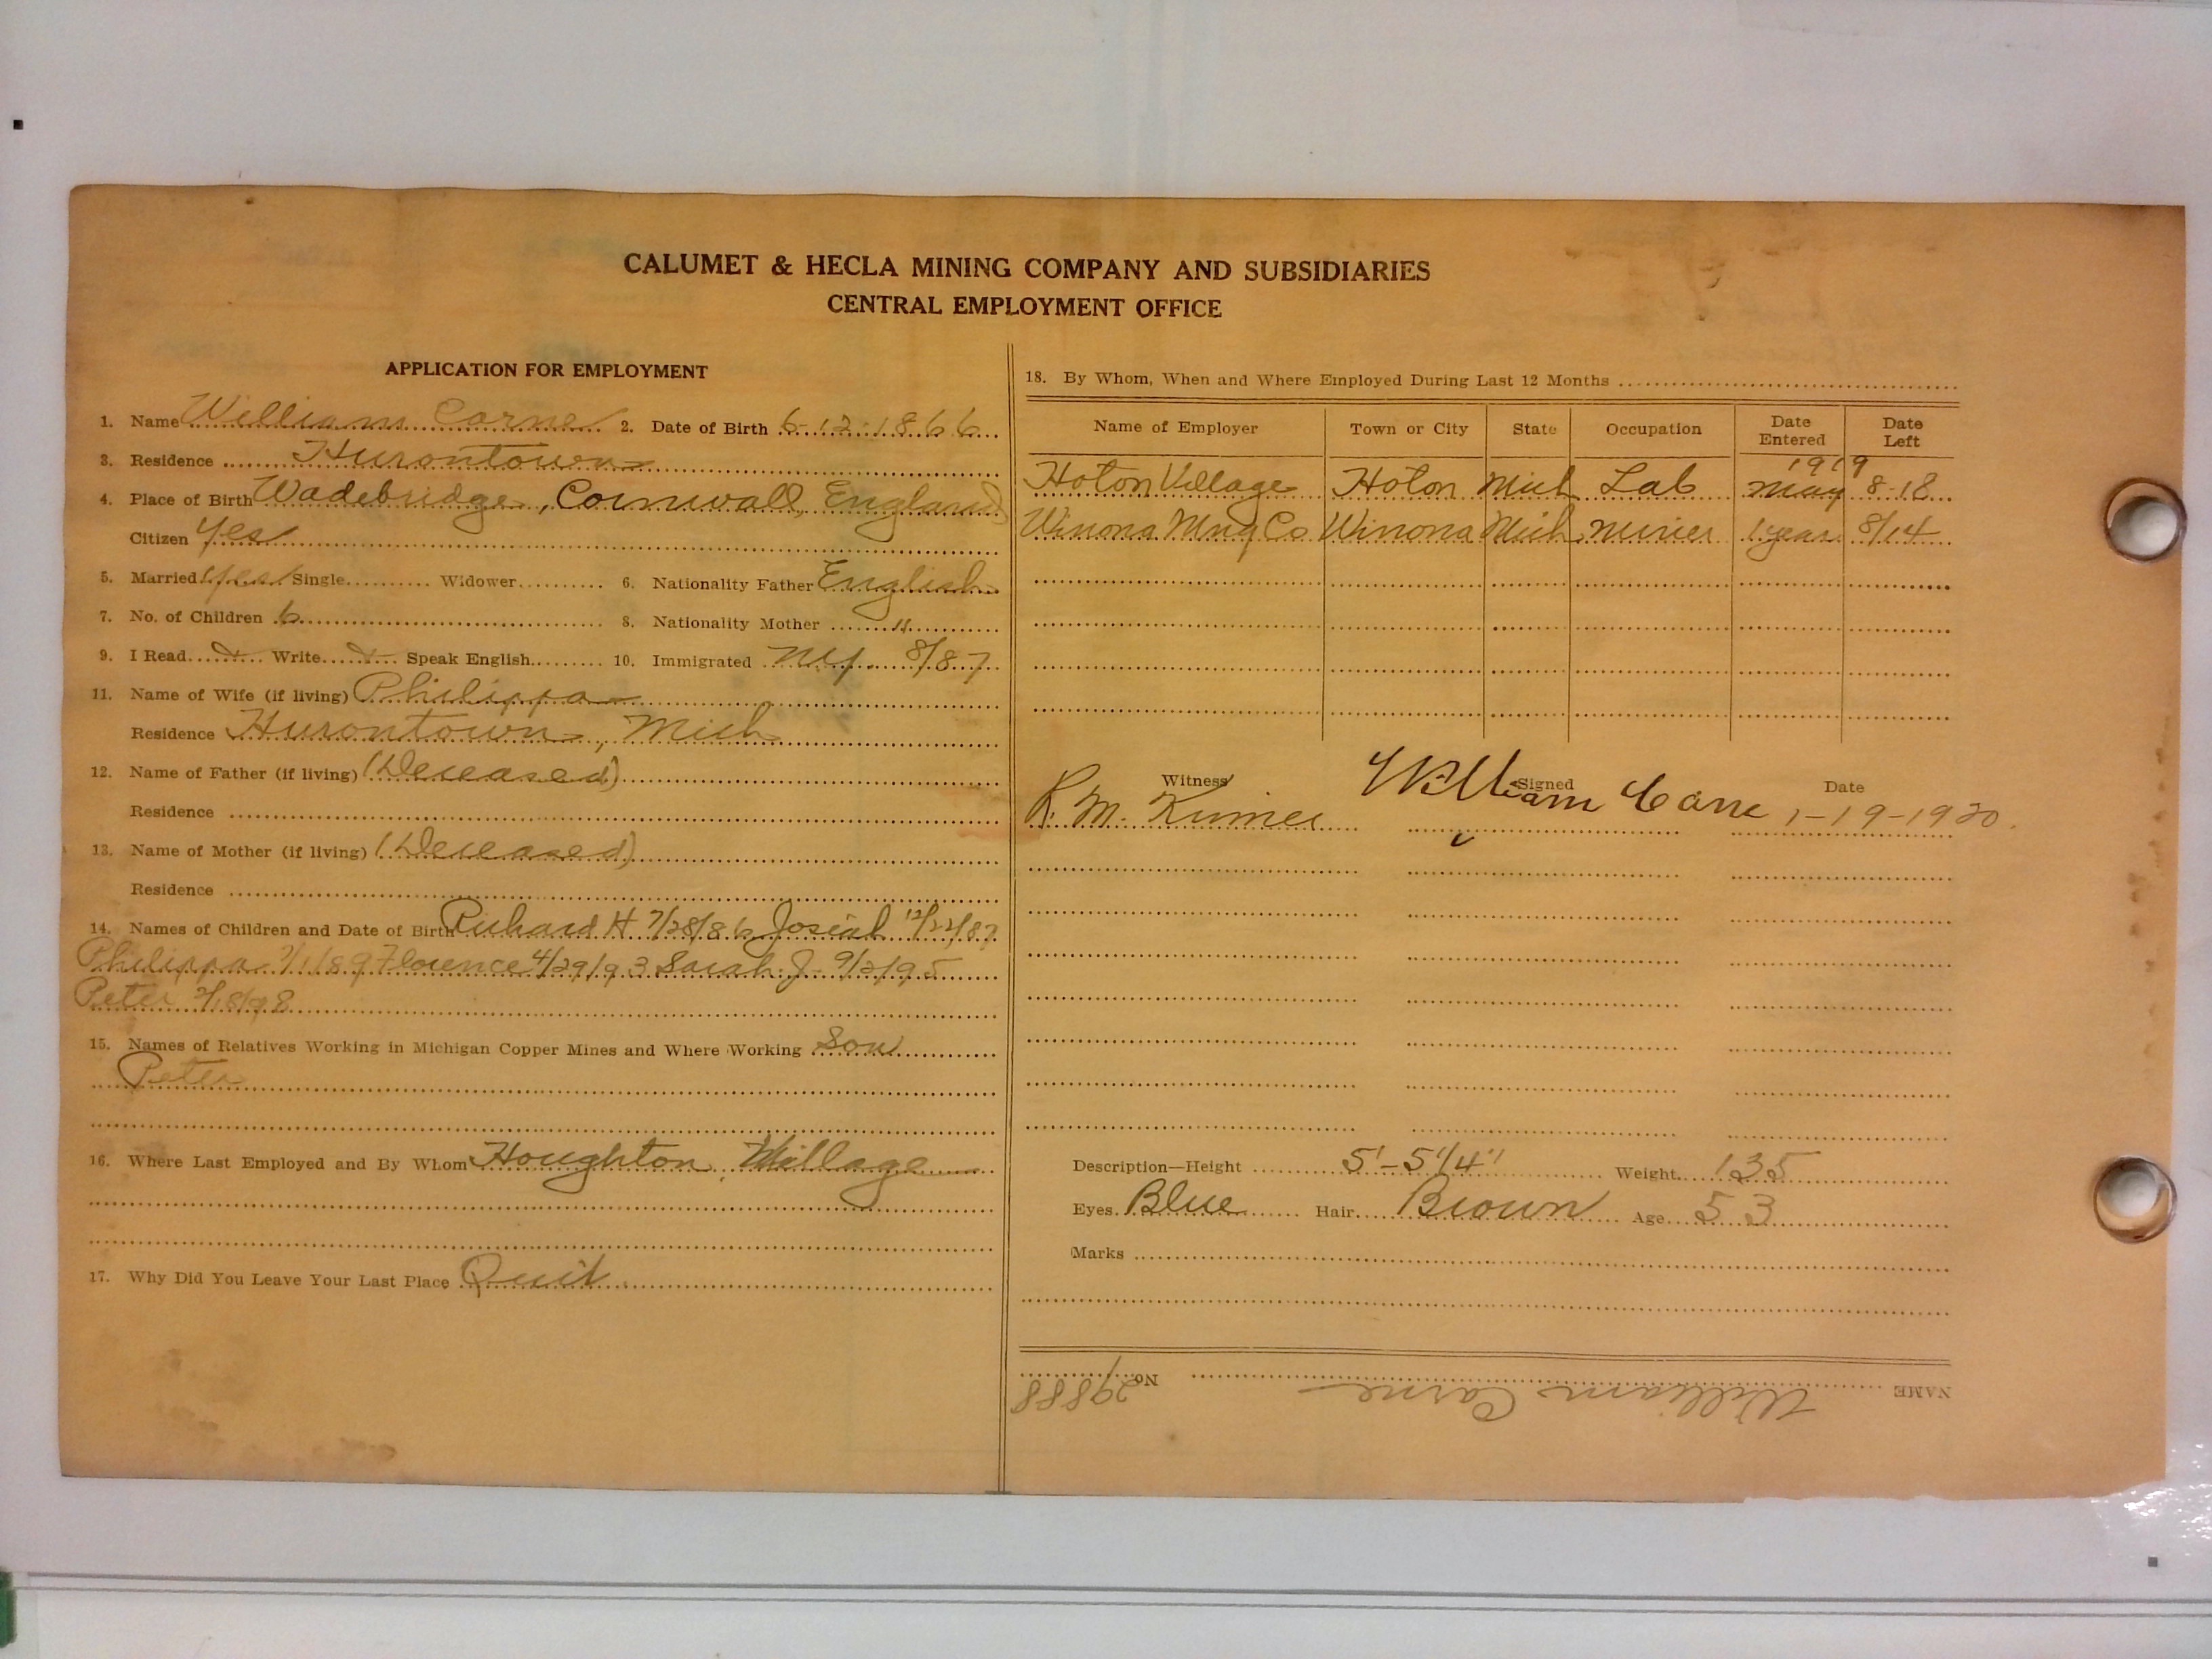 CALUMET & HECLA MINING COMPANY AND SUBSIDIARIES
CENTRAL EMPLOYMENT OFFICE
APPLICATION FOR EMPLOYMENT
1. Name William Carne 2. Date of Birth 6-12-1866
3. Residence Hurontown
4. Place of Birth Wadebridge, Cornwall, England
Citizen Yes
5. Married yes Single Widower 6. Nationality Father English
7. No. of Children 6 8. Nationality Mother "
9. I Read Write Speak English 10. Immigrated 8/87
11. Name of Wife (if living) Philippa
Residence Hurontown, Mich
12. Name of Father (if living) (Deceased)
Residence
13. Name of Mother (if living) (Deceased)
Residence
14. Names of Children and Date of Birth Richard H 7/28/86 Josiah 12/22/87
Philippa 7/1/89 Florence 4/29/93 Sarah J- 9/2/95
Peter 2/18/98
15. Names of Relatives Working in Michigan Copper Mines and Where Working Son
Peter
16. Where Last Employed and By Whom Houghton, Village
17. Why Did You Leave Your Last Place Quit
18. By Whom, When and Where Employed During Last 12 Months
Name of Employer Town or City State Occupation Date Entered Date Left
1919
Hoton Village Hoton Mich Lab May 8-18
Winona Mng Co Winona Mich miner 1 year 8/14
Witness Signed Date
R. M. William Carne 1-19-1920
Description—Height 5'-5 1/4" Weight 135
Eyes Blue Hair Brown Age 53
Marks
NAME William Carne No. 29888